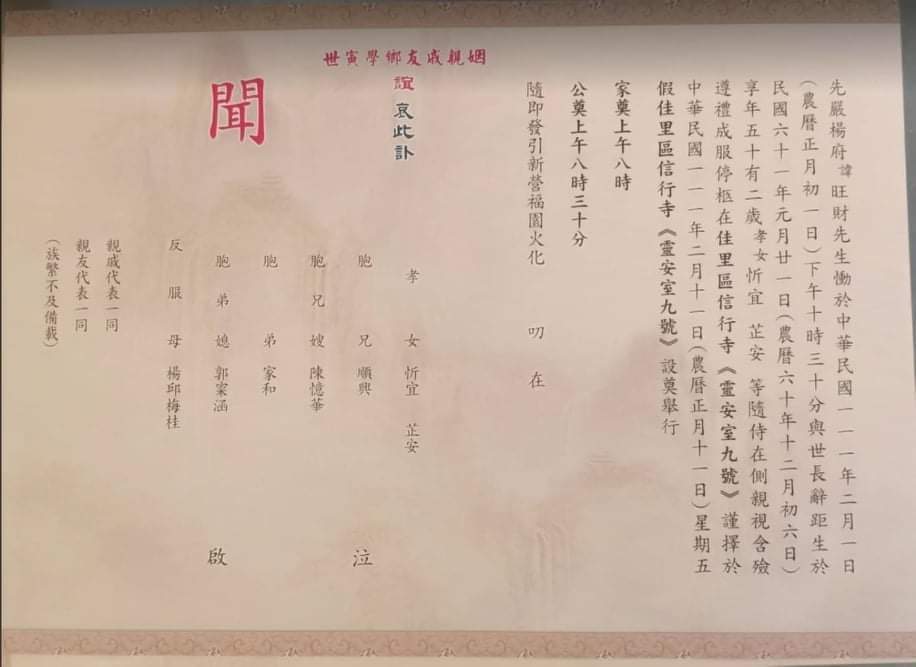 先嚴楊府諱旺財先生慟於中華民國一一一年二月一日
(農曆正月初一日)下午十時三十分與世長辭距生於
民國六十一年元月廿一日(農曆六十年十二月初六日)
享年五十有二歲孝女忻宜 芷安 等隨侍在側親視含殮
遵禮成服停柩在佳里區信行寺《靈安室九號》謹擇於
中華民國一一一年二月十一日(農曆正月十一日)星期五
假佳里區信行寺《靈安室九號》設奠舉行
家奠上午八時
公奠上午八時三十分
隨即發引新營福園火化 叨在
姻親戚友鄉學寅世
誼 哀此訃
聞
孝女 忻宜 芷安
胞兄 順興 泣
胞兄嫂 陳憶華
胞弟 家和
胞弟媳 郭寀涵 啟
反服母 楊邱梅桂
親戚代表一同
親友代表一同
(族繁不及備載)